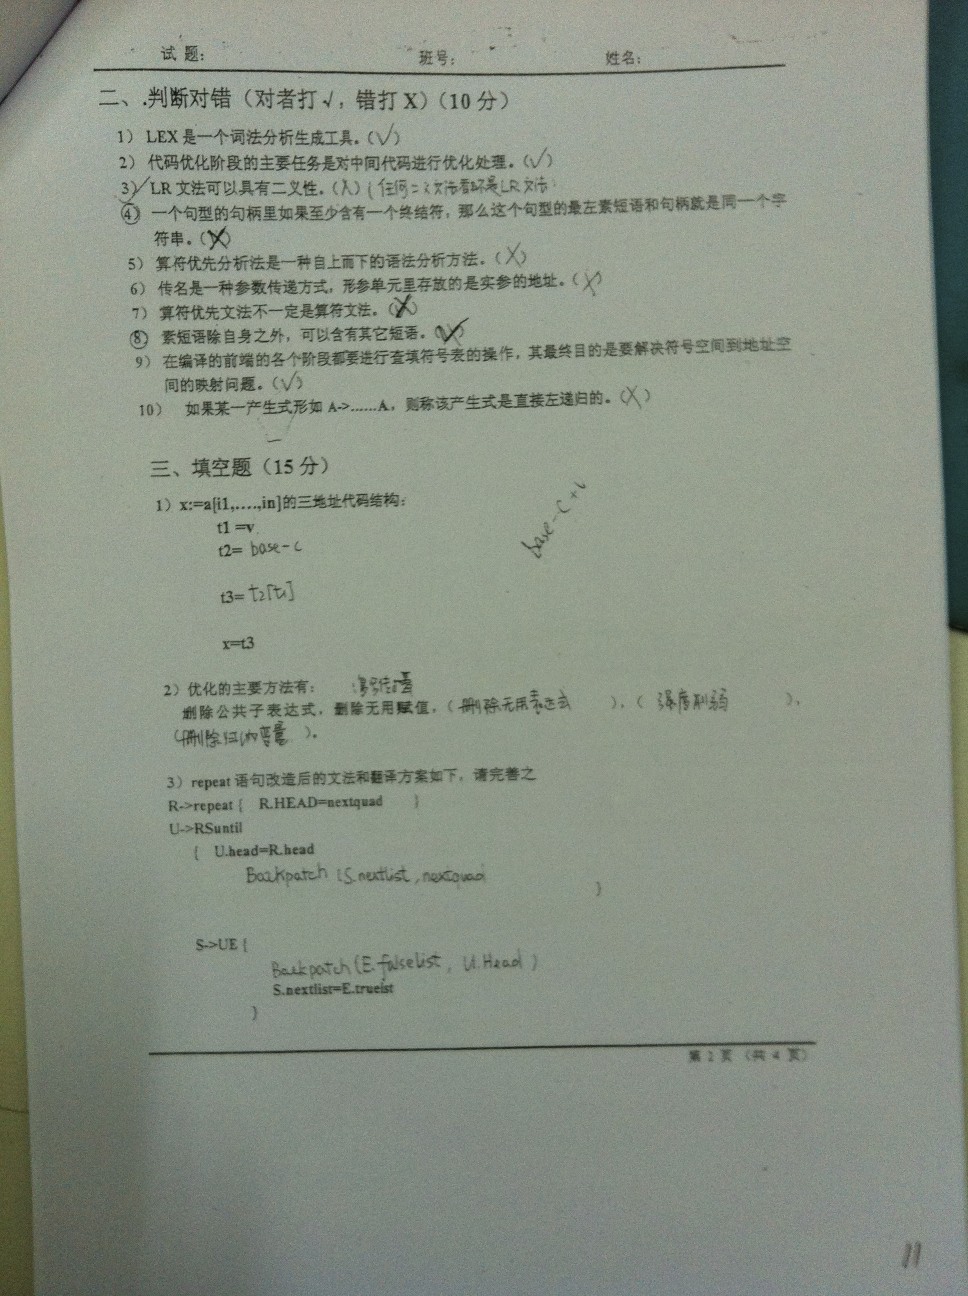 试 题: 班号: 姓名:
二、.判断对错（对者打√，错打X）(10 分)
1） LEX 是一个词法分析生成工具。(√)
2） 代码优化阶段的主要任务是对中间代码进行优化处理。(√)
3） LR 文法可以具有二义性。( ) (任何二义文法都不是LR文法)
④ 一个句型的句柄里如果至少含有一个终结符，那么这个句型的最左素短语和句柄就是同一个字
符串。(X)
5） 算符优先分析法是一种自上而下的语法分析方法。(X)
6） 传名是一种参数传递方式，形参单元里存放的是实参的地址。(X)
7） 算符优先文法不一定是算符文法。(X)
⑧ 素短语除自身之外，可以含有其它短语。( )
9） 在编译的前端的各个阶段都要进行查填符号表的操作，其最终目的是要解决符号空间到地址空
间的映射问题。(√)
10） 如果某一产生式形如 A->……A，则称该产生式是直接左递归的。(X)
三、填空题（15 分）
1）x:=a[i1,….,in]的三地址代码结构:
t1 =v
t2= base-c
base-c+v
t3= t2[t1]
x=t3
2）优化的主要方法有:
删除公共子表达式，删除无用赋值，( 删除无用表达式 )，( 强度削弱 )，
(删除归纳变量 )。
3）repeat 语句改造后的文法和翻译方案如下，请完善之
R->repeat { R.HEAD=nextquad }
U->RSuntil
{ U.head=R.head
Backpatch (S.nextlist, nextquad
}
S->UE {
Backpatch(E.falselist, U.Head )
S.nextlist=E.trueist
}
第 2 页 （共 4 页）
11